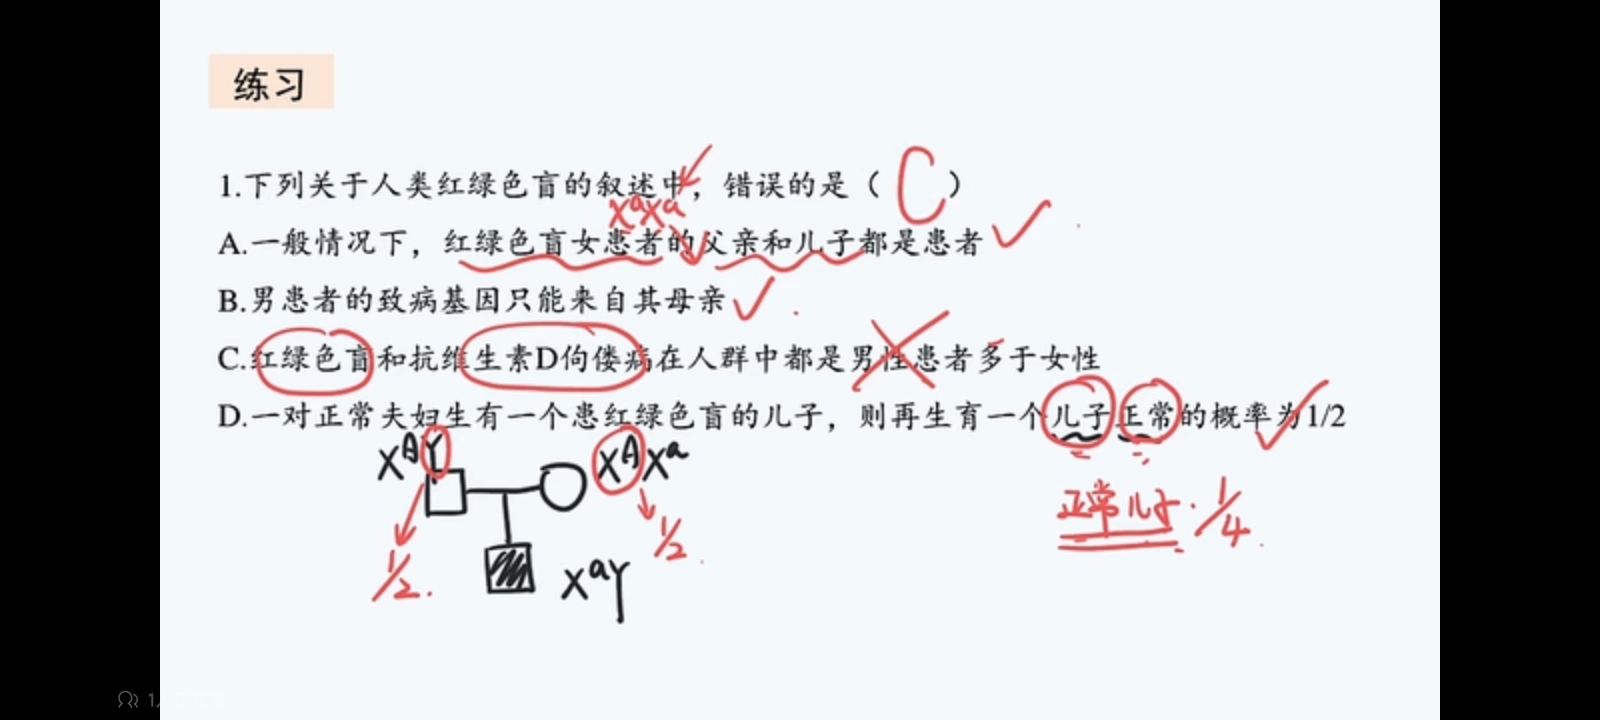 练习
1.下列关于人类红绿色盲的叙述中，错误的是（ C ）
XᵃXᵃ
A.一般情况下，红绿色盲女患者的父亲和儿子都是患者
B.男患者的致病基因只能来自其母亲
C.红绿色盲和抗维生素D佝偻病在人群中都是男性患者多于女性
D.一对正常夫妇生有一个患红绿色盲的儿子，则再生育一个儿子正常的概率为1/2
XᴬY XᴬXᵃ
正常儿子.1/4
1/2. 1/2.
XᵃY